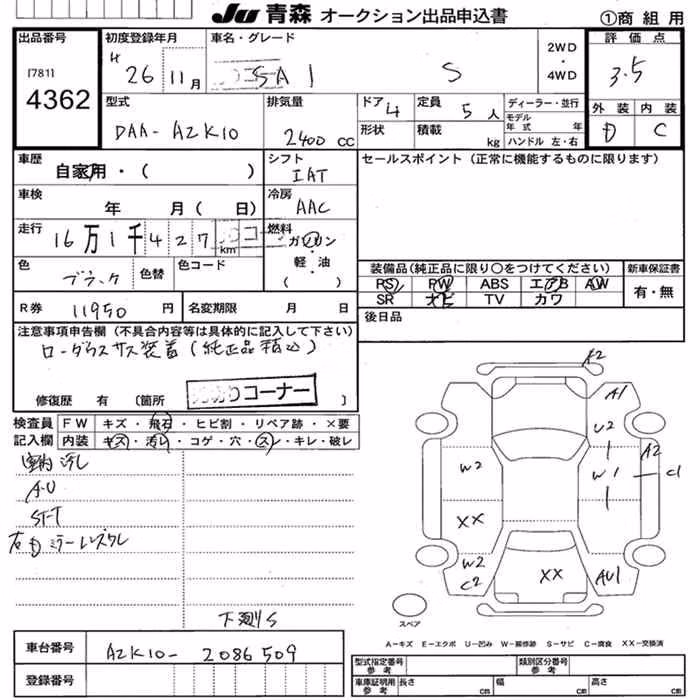 JU 青森 オークション出品申込書
①商 組 用
出品番号
[781]
4362
初度登録年月
H 26 11 月
車名・グレード
SAI S
2WD
・
4WD
評 価 点
3.5
外 装 内 装
D C
型式
DAA-AZK10
排気量
2400 cc
ドア 4
形状
定員 5 人
積載 kg
ディーラー・並行
モデル
年 式 年
ハンドル 左・右
車歴
自家用・( )
シフト
IAT
セールスポイント(正常に機能するものに限ります)
車検
年 月( 日)
冷房
AAC
走行
16万1千427 km
燃料
ガソリン
・
軽・油
( )
色
ブラック
色替
色コード
装備品(純正品に限り○をつけてください)
PS PW ABS エアB AW
SR ナビ TV カワ
新車保証書
有・無
R券 11950 円
名変期限 月 日
後日品
注意事項申告欄(不具合内容等は具体的に記入して下さい)
ローダウンサス装着(純正品積込)
修復歴 有 (箇所
コーナー
検査員
記入欄
FW キズ・飛石・ヒビ割・リペア跡・×要
内装 キズ・汚レ・コゲ・穴・スレ・キレ・破レ
A・U
下廻りS
A2
A1
U2
W2
W1
A2
C1
XX
W2
C2
XX
AU1
スペア
A-キズ E-エクボ U-凹み W-補修跡 S-サビ C-腐食 XX-交換済
車台番号
AZK10-2086509
登録番号
型式指定番号
参 考
類別区分番号
参 考
車庫証明用
参 考
長さ cm
幅 cm
高さ cm